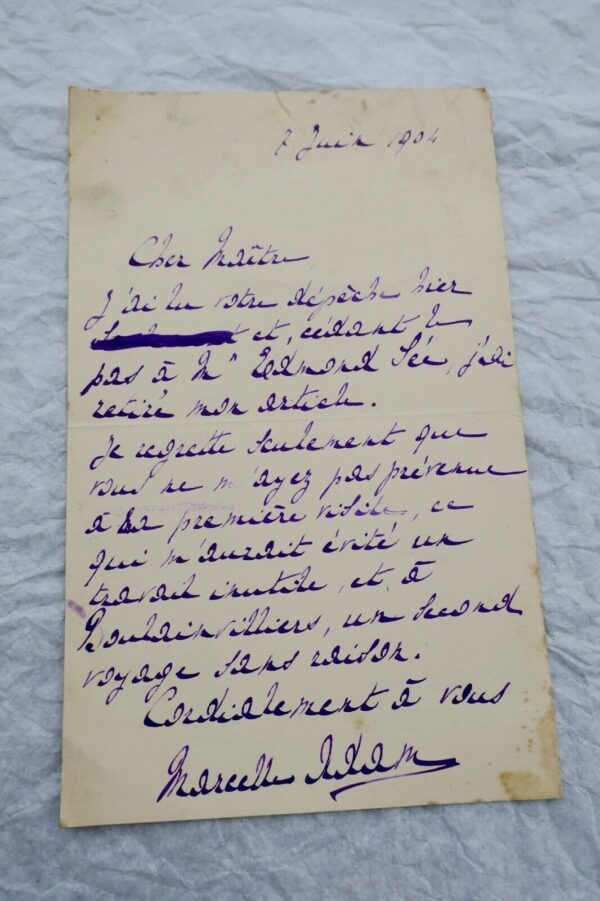 7 Juin 1904
Cher Maître
J'ai lu votre dépêche hier
et, cédant le
pas à Mr Edmond Sée, j'ai
retiré mon article.
Je regrette seulement que
vous ne m'ayez pas prévenue
à la première visite, ce
qui m'aurait évité un
travail inutile, et, à
Boulainvilliers, un second
voyage sans raison.
Cordialement à vous
Marcelle Adam